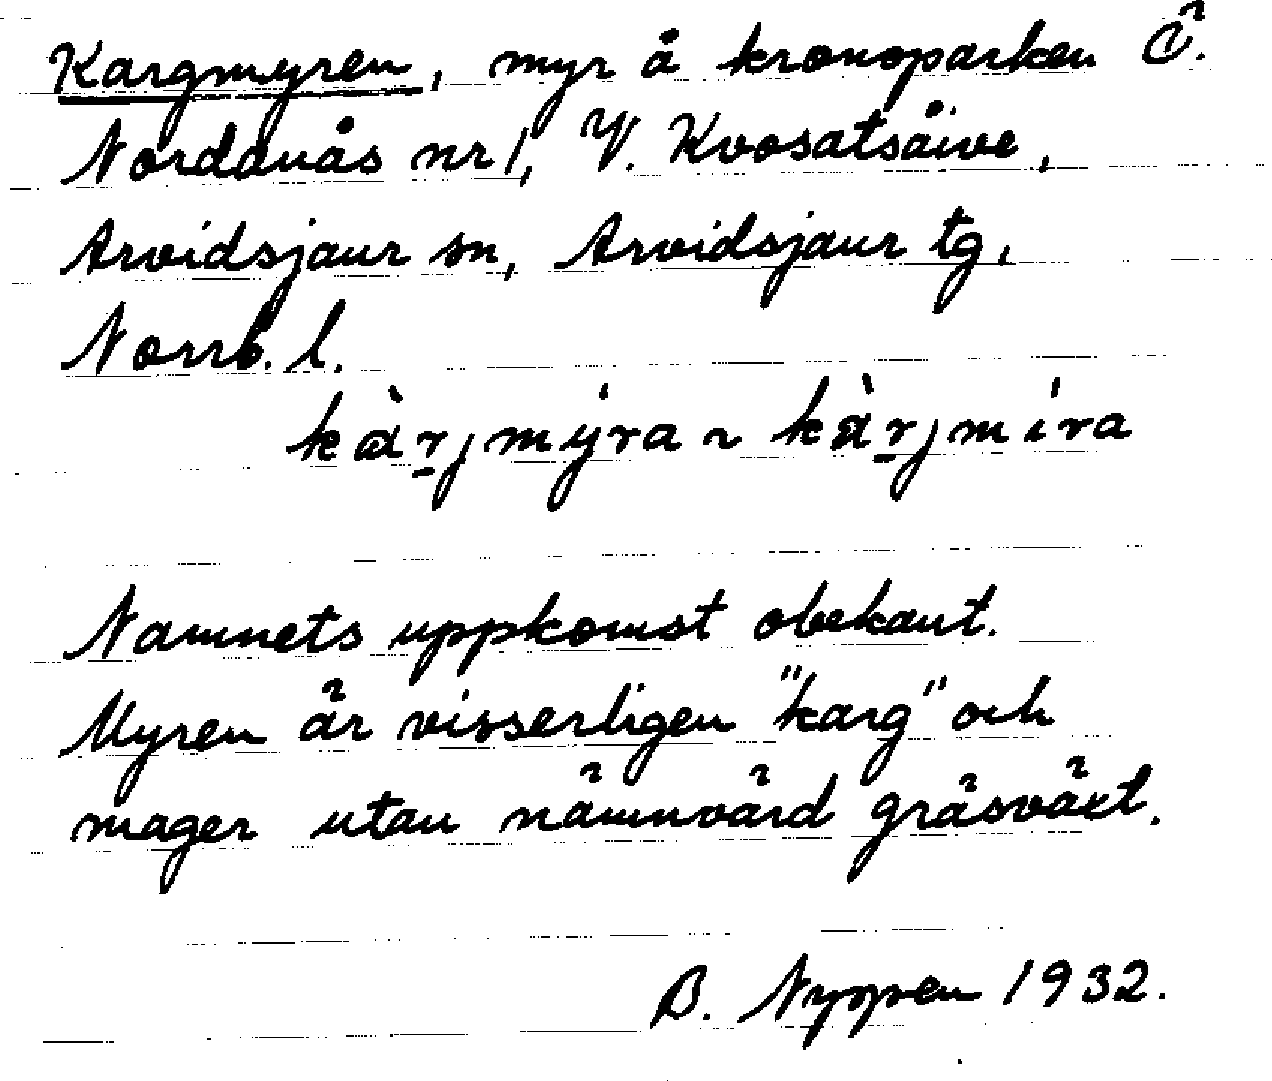 Kargmyren, myr å kronoparken Ö.
Nordanås nr 1, V. Kvosatsåive,
Arvidsjaur sn, Arvidsjaur tg,
Norrb. l.
kàrjmýra ~ kàrjmíra
Namnets uppkomst obekant.
Myren är visserligen "karg" och
mager utan nämnvärd gräsväxt.
B. Nyppen 1932.